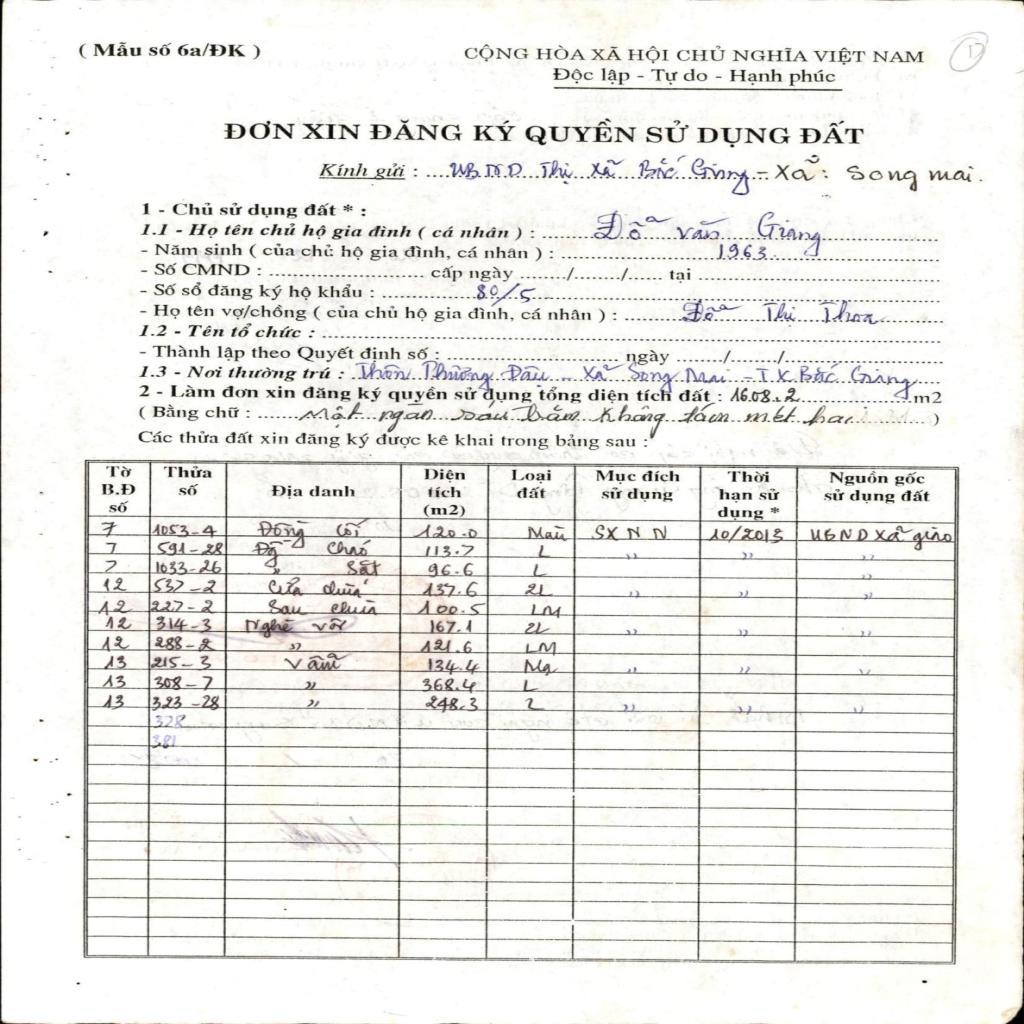 ( Mẫu số 6a/ĐK )
CỘNG HÒA XÃ HỘI CHỦ NGHĨA VIỆT NAM
Độc lập - Tự do - Hạnh phúc
ĐƠN XIN ĐĂNG KÝ QUYỀN SỬ DỤNG ĐẤT
Kính gửi : UBND Thị Xã Bắc Giang - Xã: Song mai.
1 - Chủ sử dụng đất * :
1.1 - Họ tên chủ hộ gia đình ( cá nhân ) : Đỗ văn Giang
- Năm sinh ( của chủ hộ gia đình, cá nhân ) : 1963
- Số CMND : cấp ngày / / tại
- Số sổ đăng ký hộ khẩu : 80/5
- Họ tên vợ/chồng ( của chủ hộ gia đình, cá nhân ) : Đỗ Thị Thoa
1.2 - Tên tổ chức :
- Thành lập theo Quyết định số : ngày / /
1.3 - Nơi thường trú : Thôn Phương Đậu - Xã Song Mai - T.X Bắc Giang
2 - Làm đơn xin đăng ký quyền sử dụng tổng diện tích đất : 1608.2 m2
( Bằng chữ : một ngàn sáu trăm không tám mét hai )
Các thửa đất xin đăng ký được kê khai trong bảng sau :
Tờ B.Đ số Thửa số Địa danh Diện tích (m2) Loại đất Mục đích sử dụng Thời hạn sử dụng * Nguồn gốc sử dụng đất
7 1053-4 Đồng Cối 120.0 Màu SX N N 10/2013 UBND Xã giao
7 591-28 Chao 113.7 L " " "
7 1033-26 " Sắt 96.6 L "
12 537-2 Cửa chùa 137.6 2L " " "
12 227-2 Sau chùa 100.5 LM
12 314-3 Nghè vối 167.1 2L " " "
12 288-2 " 121.6 LM
13 215-3 134.4 Mạ " " "
13 308-7 " 368.4 L
13 323-28 " 248.3 2 " " "
328
381